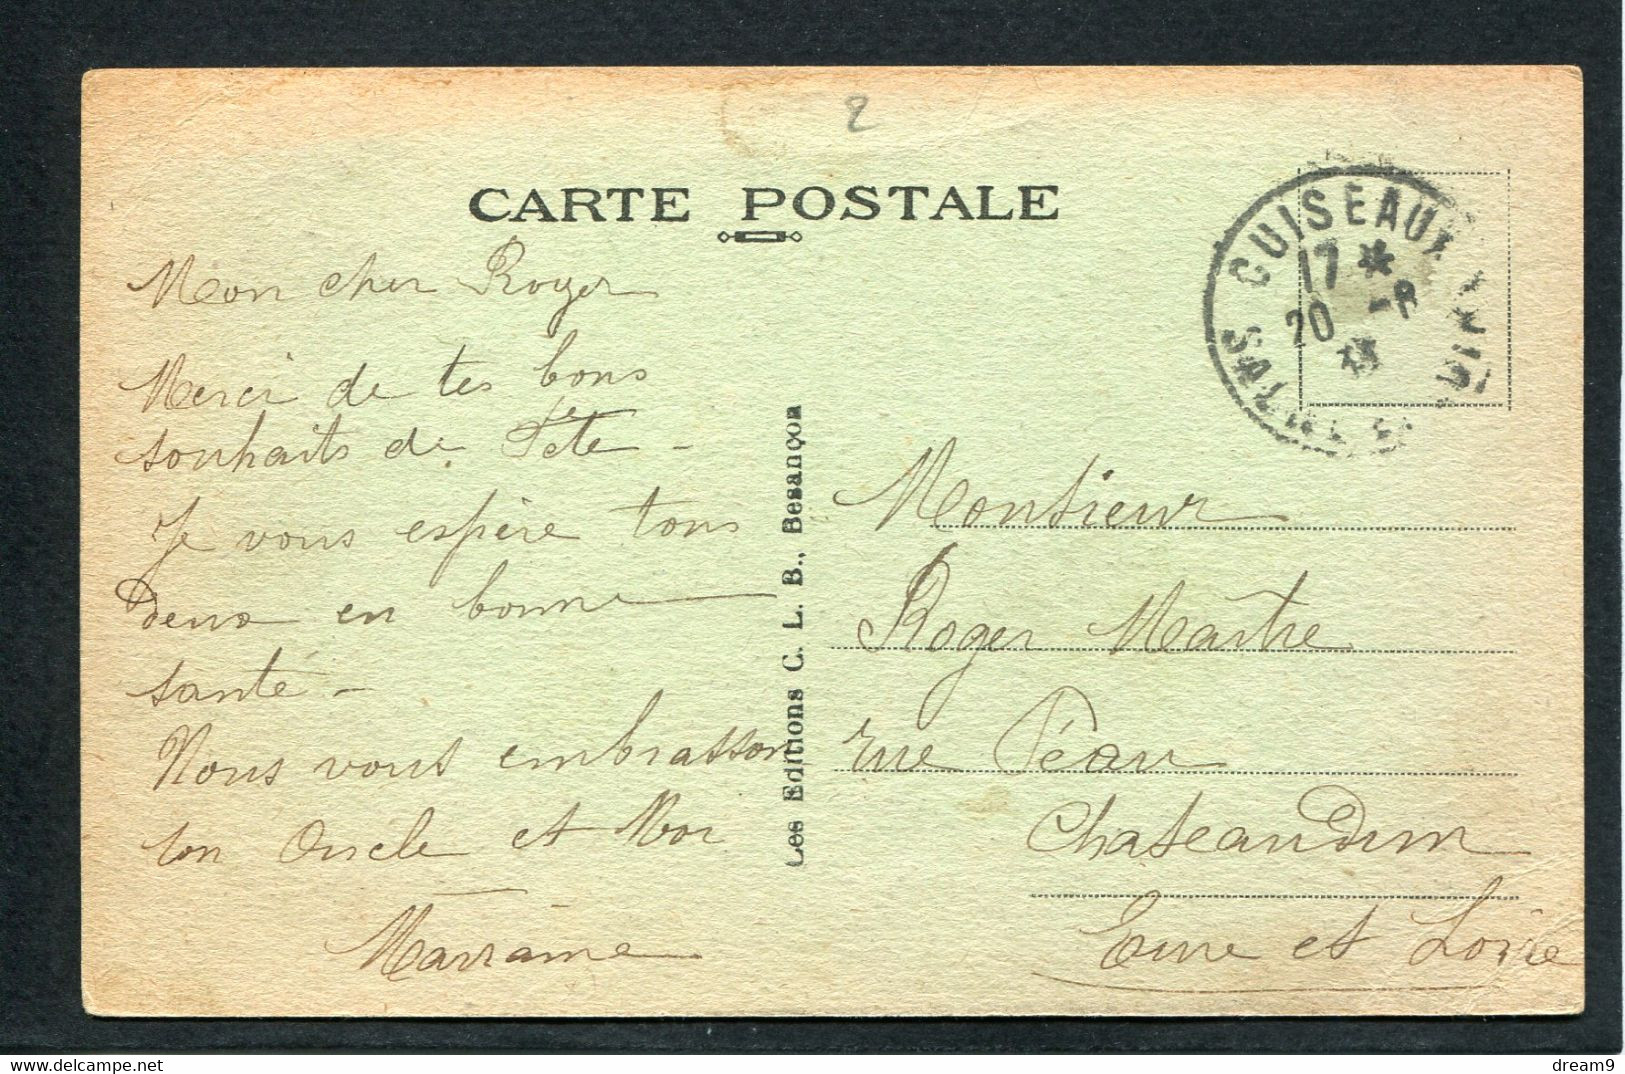 2
CARTE POSTALE
CUISEAUX
17 *
20 -8
Mon cher Roger
Merci de tes bons
souhaits de Fête -
Je vous espère tous
deux en bonne
santé -
Nous vous embrassons
ton Oncle et Moi
Marraine
Les Editions C. L. B., Besançon
Monsieur
Roger Maître
rue Péau
Chateaudun
Eure et Loire
dream9